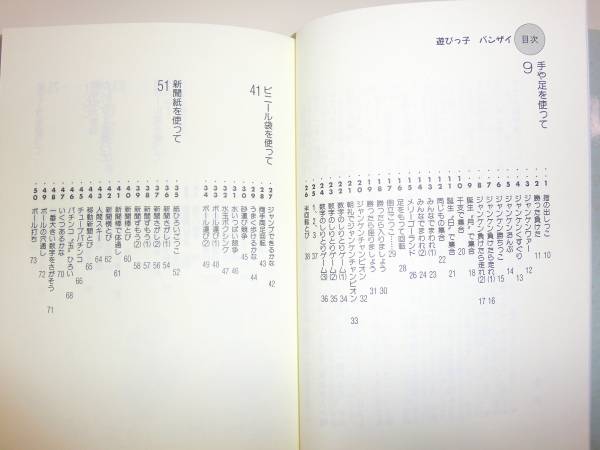 目次
遊びっ子 バンザイ
手や足を使って
9
・1 指の出しっこ 10
・2 勝った負けた 11
・3 ジャンケンワァー 12
・4 ジャンケンくすぐり 13
・5 ジャンケンおんぶ 14
・6 ジャンケン勝ちっこ 15
・7 ジャンケン負けたら走れ(1) 16
・8 ジャンケン負けたら走れ(2) 17
・9 誕生“月”で集合 18
・10 干支で集合 20
・11 誕生“日”で集合 21
・12 同じもの集合 22
・13 みんなでまわれ(1) 23
・14 みんなでまわれ(2) 24
・15 メリーゴーランド 26
・16 足をもって回転 28
・17 倒立ごっこ 29
・18 勝ったら入りましょう 30
・19 勝ったら座りましょう 31
・20 ジャンケンチャンピオン
・21 朝礼もジャンケンチャンピオン 33
・22 数字のしりとりゲーム(1) 34
・23 数字のしりとりゲーム(2) 35
・24 数字のしりとりゲーム(3) 36
・25 1、2、3 37
・26 半回転とび 38
ビニール袋を使って
41
・27 ジャンプできるかな 42
・28 両手両足回転 43
・29 うまく歩けるかな 44
・30 砂運び競争 45
・31 水いっぱい競争 46
・32 水玉ボクシング 47
・33 ボール運び(1) 48
・34 ボール運び(2) 49
新聞紙を使って
51
・35 紙ひろいごっこ 52
・36 新聞さがし(1) 54
・37 新聞さがし(2) 56
・38 新聞ずもう(1) 57
・39 新聞ずもう(2) 58
・40 新聞棒とび 60
・41 新聞棒で体通し 61
・42 新聞棒とび 62
・43 人間スキー 64
・44 移動新聞とび 64
・45 チューブパチンコ 66
・46 パチンコ“玉”ひろい 68
・47 いくつあるかな 70
・48 一番大きい数字をさがそう 71
・49 ボールの穴通し 72
・50 ボール打ち 73